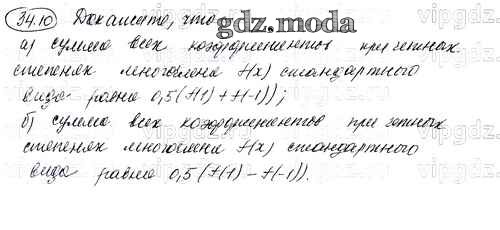 34.10 Доказать, что
gdz.moda
а) сумма всех коэффициентов при четных
степенях многочлена f(x) стандартного
вида равна 0,5(f(1) + f(-1));
б) сумма всех коэффициентов при четных
степенях многочлена f(x) стандартного
вида равна 0,5(f(1) - f(-1)).